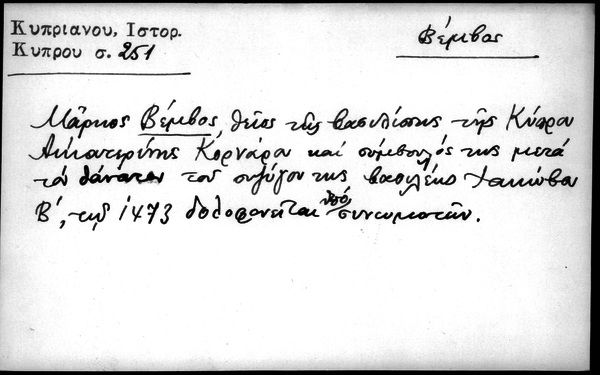 Κυπριανου, Ιστορ.
Κυπρου σ. 251
Βέμβος
Μᾶρκος Βέμβος, θεῖος τῆς βασιλίσσης τῆς Κύπρου
Αἰκατερίνης Κορνάρο καί σύμβουλός της μετά
τόν θάνατον τοῦ συζύγου της βασιλέως Ἰακώβου
Β', τῷ 1473 δολοφονεῖται ὑπό συνωμοτῶν.